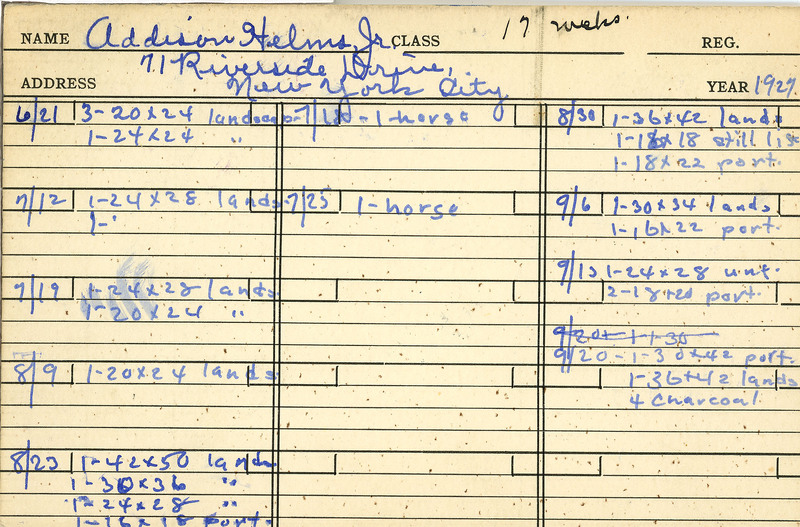 NAME Addison Helms, Jr. CLASS 17 weeks. REG.
ADDRESS 71 Riverside Drive,
New York City YEAR 1927.
6/21 3-20x24 landscape
1-24x24 "
7/12 1-24x28 lands
1-"
7/19 1-24x28 lands
1-20x24 "
8/9 1-20x24 lands
8/23 1-42x50 lands
1-30x36 "
1-24x28 "
1-16x18 port.
1-horse
7/25 1-horse
8/30 1-36x42 lands
1-18x18 still life
1-18x22 port.
9/6 1-30x34 lands
1-16x22 port.
9/13 1-24x28 unt.
2-18x20 port.
9/20-1-1-30
9/20-1-30x42 port.
1-36x42 lands
4 Charcoal